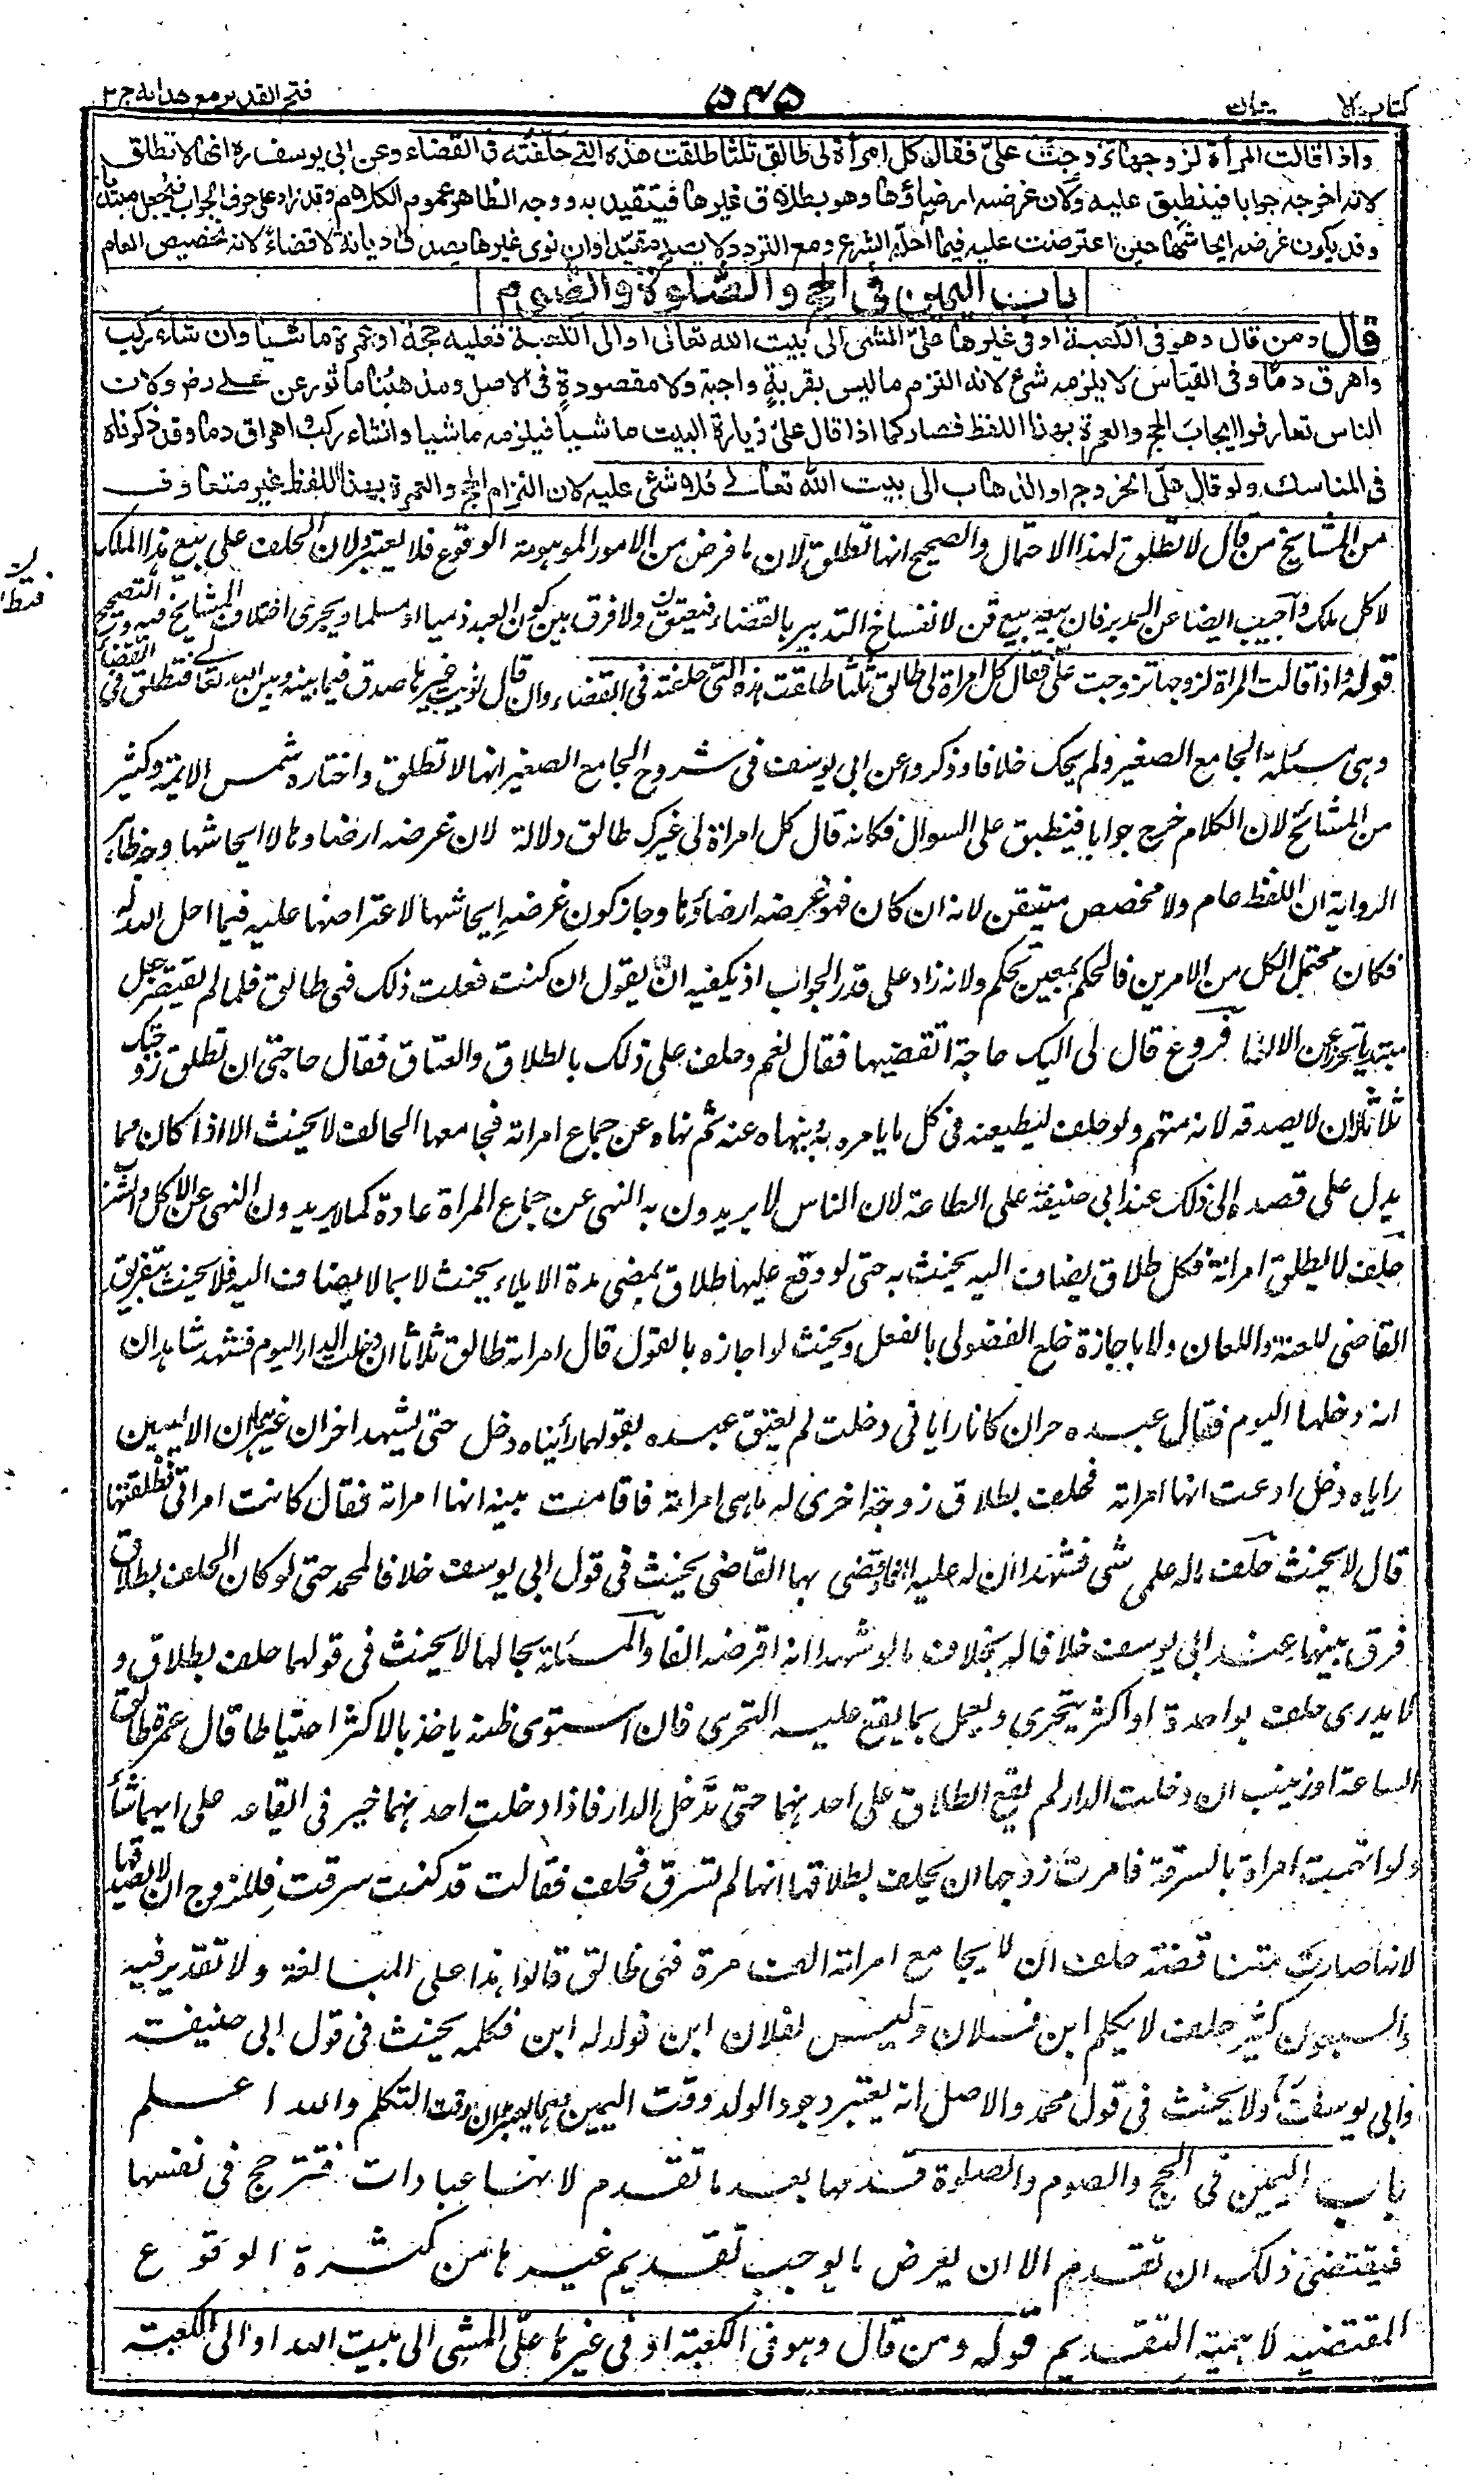 كتاب الايمان ٥٤٥ فتح القدير مع هدايه ج٢
واذا قالت المرأة لزوجها تزوجت علىّ فقال كل امرأة لى طالق ثلثا طلقت هذه التى حلفته فى القضاء وعن ابى يوسف ره انها لا تطلق
لانه اخرجه جوابا فينطبق عليه ولان غرضه ارضاؤها وهو بطلاق غيرها فيتقيد به ووجه الظاهر عموم الكلام وقد زاد على حرف الجواب فيجعل مبتدئا
وقد يكون غرضه ايحاشها حين اعترضت عليه فيما احله الشرع ومع التردد لا يصلح مقيدا وان نوى غيرها يصدق ديانة لا قضاء لانه تخصيص العام
باب اليمين فى الحج والصلوة والصوم
قال ومن قال وهو فى الكعبة او فى غيرها علىّ المشى الى بيت الله تعالى او الى الكعبة فعليه حجة او عمرة ماشيا وان شاء ركب
واهرق دما وفى القياس لا يلزمه شئ لانه التزم ما ليس بقربة واجبة ولا مقصودة فى الاصل ومذهبنا ماثور عن على رض ولان
الناس تعارفوا ايجاب الحج والعمرة بهذا اللفظ فصار كما اذا قال علىّ زيارة البيت ماشيا فيلزمه ماشيا وانشاء ركب واهراق دما وقد ذكرناه
فى المناسك ولو قال علىّ الخروج او الذهاب الى بيت الله تعالى فلا شئ عليه لان التزام الحج والعمرة بهذا اللفظ غير متعارف
من المشايخ من قال لا تطلق لهذا الاحتمال والصحيح انها تطلق لان ما فرض من الامور الموهومة الوقوع فلا يعتبر لان الحلف على بيع هذا الملك
لا كل ملك وأجيب ايضا عن المدبر فان بيعه بيع قن لانفساخ التدبير بالقضاء فيعتق ولا فرق بين كون العبد ذميا او مسلما ويجرى اختلاف المشايخ فيه وترجيح التصحيح
قوله واذا قالت المراة لزوجها تزوجت علىّ فقال كل امراة لى طالق ثلثا طلقت هذه التى حلفته فى القضاء وان قال نويت غيرها صدق فيما بينه وبين الله تعالى فتطلق فى القضاء
وهى مسئلة الجامع الصغير ولم يحك خلافا وذكروا عن ابى يوسف فى شروح الجامع الصغير انها لا تطلق واختاره شمس الائمة وكثير
من المشائخ لان الكلام خرج جوابا فينطبق على السوال فكانه قال كل امراة لى غيرك طالق دلالة لان غرضه ارضاؤها لا ايحاشها وجه ظاهر
الرواية ان اللفظ عام ولا مخصص متيقن لانه ان كان فهو غرضه ارضاؤها وجاز كون غرضه ايحاشها لاعتراضها عليه فيما احل الله له
فكان محتمل الكل من الامرين فالحكم بمعين تحكم ولانه زاد على قدر الجواب اذ يكفيه ان يقول ان كنت فعلت ذلك فهى طالق فلما لم يقتصر جعل
مبتدئا تحرزا عن الالغاء فروع قال لى اليك حاجة اتقضيها فقال نعم وحلف على ذلك بالطلاق والعتاق فقال حاجتى ان تطلق زوجتك
ثلاثا فله ان لا يصدقه لانه متهم ولو حلف ليطيعنه فى كل ما يامره به وينهاه عنه ثم نهاه عن جماع امراته فجامعها الحالف لا يحنث الا اذا كان مما
يدل على قصده الى ذلك عند ابى حنيفة على الطاعة لان الناس لا يريدون به النهى عن جماع المراة عادة كما لا يريدون النهى عن الاكل والشرب
حلف لا يطلق امراته فكل طلاق يضاف اليه يحنث به حتى لو وقع عليها طلاق بمضى مدة الايلاء يحنث لا بما لا يضاف اليه فلا يحنث بتفريق
القاضى للعنة واللعان ولا باجازة خلع الفضولى بالفعل ويحنث لو اجازه بالقول قال امراته طالق ثلاثا ان دخلت الدار اليوم فشهد شاهدان
انه دخلها اليوم فقال عبده حر ان كانا رايانى دخلت لم يعتق عبده بقولهما رأيناه دخل حتى يشهد اخران غيرهما ان الاولين
راياه دخل ادعت انها امراته فحلف بطلاق زوجة اخرى له ما هى امراته فاقامت بينة انها امراته فقال كانت امراتى فطلقتها
قال لا يحنث حلف ما له على شئ فشهدا ان له عليه الفا وقضى بها القاضى يحنث فى قول ابى يوسف خلافا لمحمد حتى لو كان الحلف بطلاق
فرق بينهما عند ابى يوسف خلافا له بخلاف ما لو شهدا انه اقرضه الفا والمسئلة بحالها لا يحنث فى قولهما حلف بطلاق و
لا يدرى حلف بواحدة او اكثر يتحرى ويعمل بما يقع عليه التحرى فان استوى ظنه ياخذ بالاكثر احتياطا قال عمرة طالق
الساعة او زينب ان دخلت الدار لم يقع الطلاق على احدهما حتى تدخل الدار فاذا دخلت احدهما خير فى ايقاعه على ايهما شاء
ولو اتهمت امراة بالسرقة فامرت زوجها ان يحلف بطلاقها انها لم تسرق فحلف فقالت قد كنت سرقت فللزوج ان لا يصدقها
لانها صارت متناقضة حلف ان لا يجامع امراته الف مرة فهى طالق قالوا هذا على المبالغة ولا تقدير فيه
والسبعون كثير حلف لا يكلم ابن فلان وليس لفلان ابن فولد له ابن فكلمه يحنث فى قول ابى حنيفة
وابى يوسف ولا يحنث فى قول محمد والاصل انه يعتبر وجود الولد وقت اليمين وهما يعتبران وقت التكلم والله اعلم
باب اليمين فى الحج والصوم والصلوة قدمها بعد ما تقدم لانها عبادات فترجح فى نفسها
فيقتضى ذلك ان تقدم الا ان يعرض ما يوجب تقديم غيرها من كثرة الوقوع
المقتضية لاهمية التقديم قوله ومن قال وهو فى الكعبة او فى غيرها علىّ المشى الى بيت الله او الى الكعبة